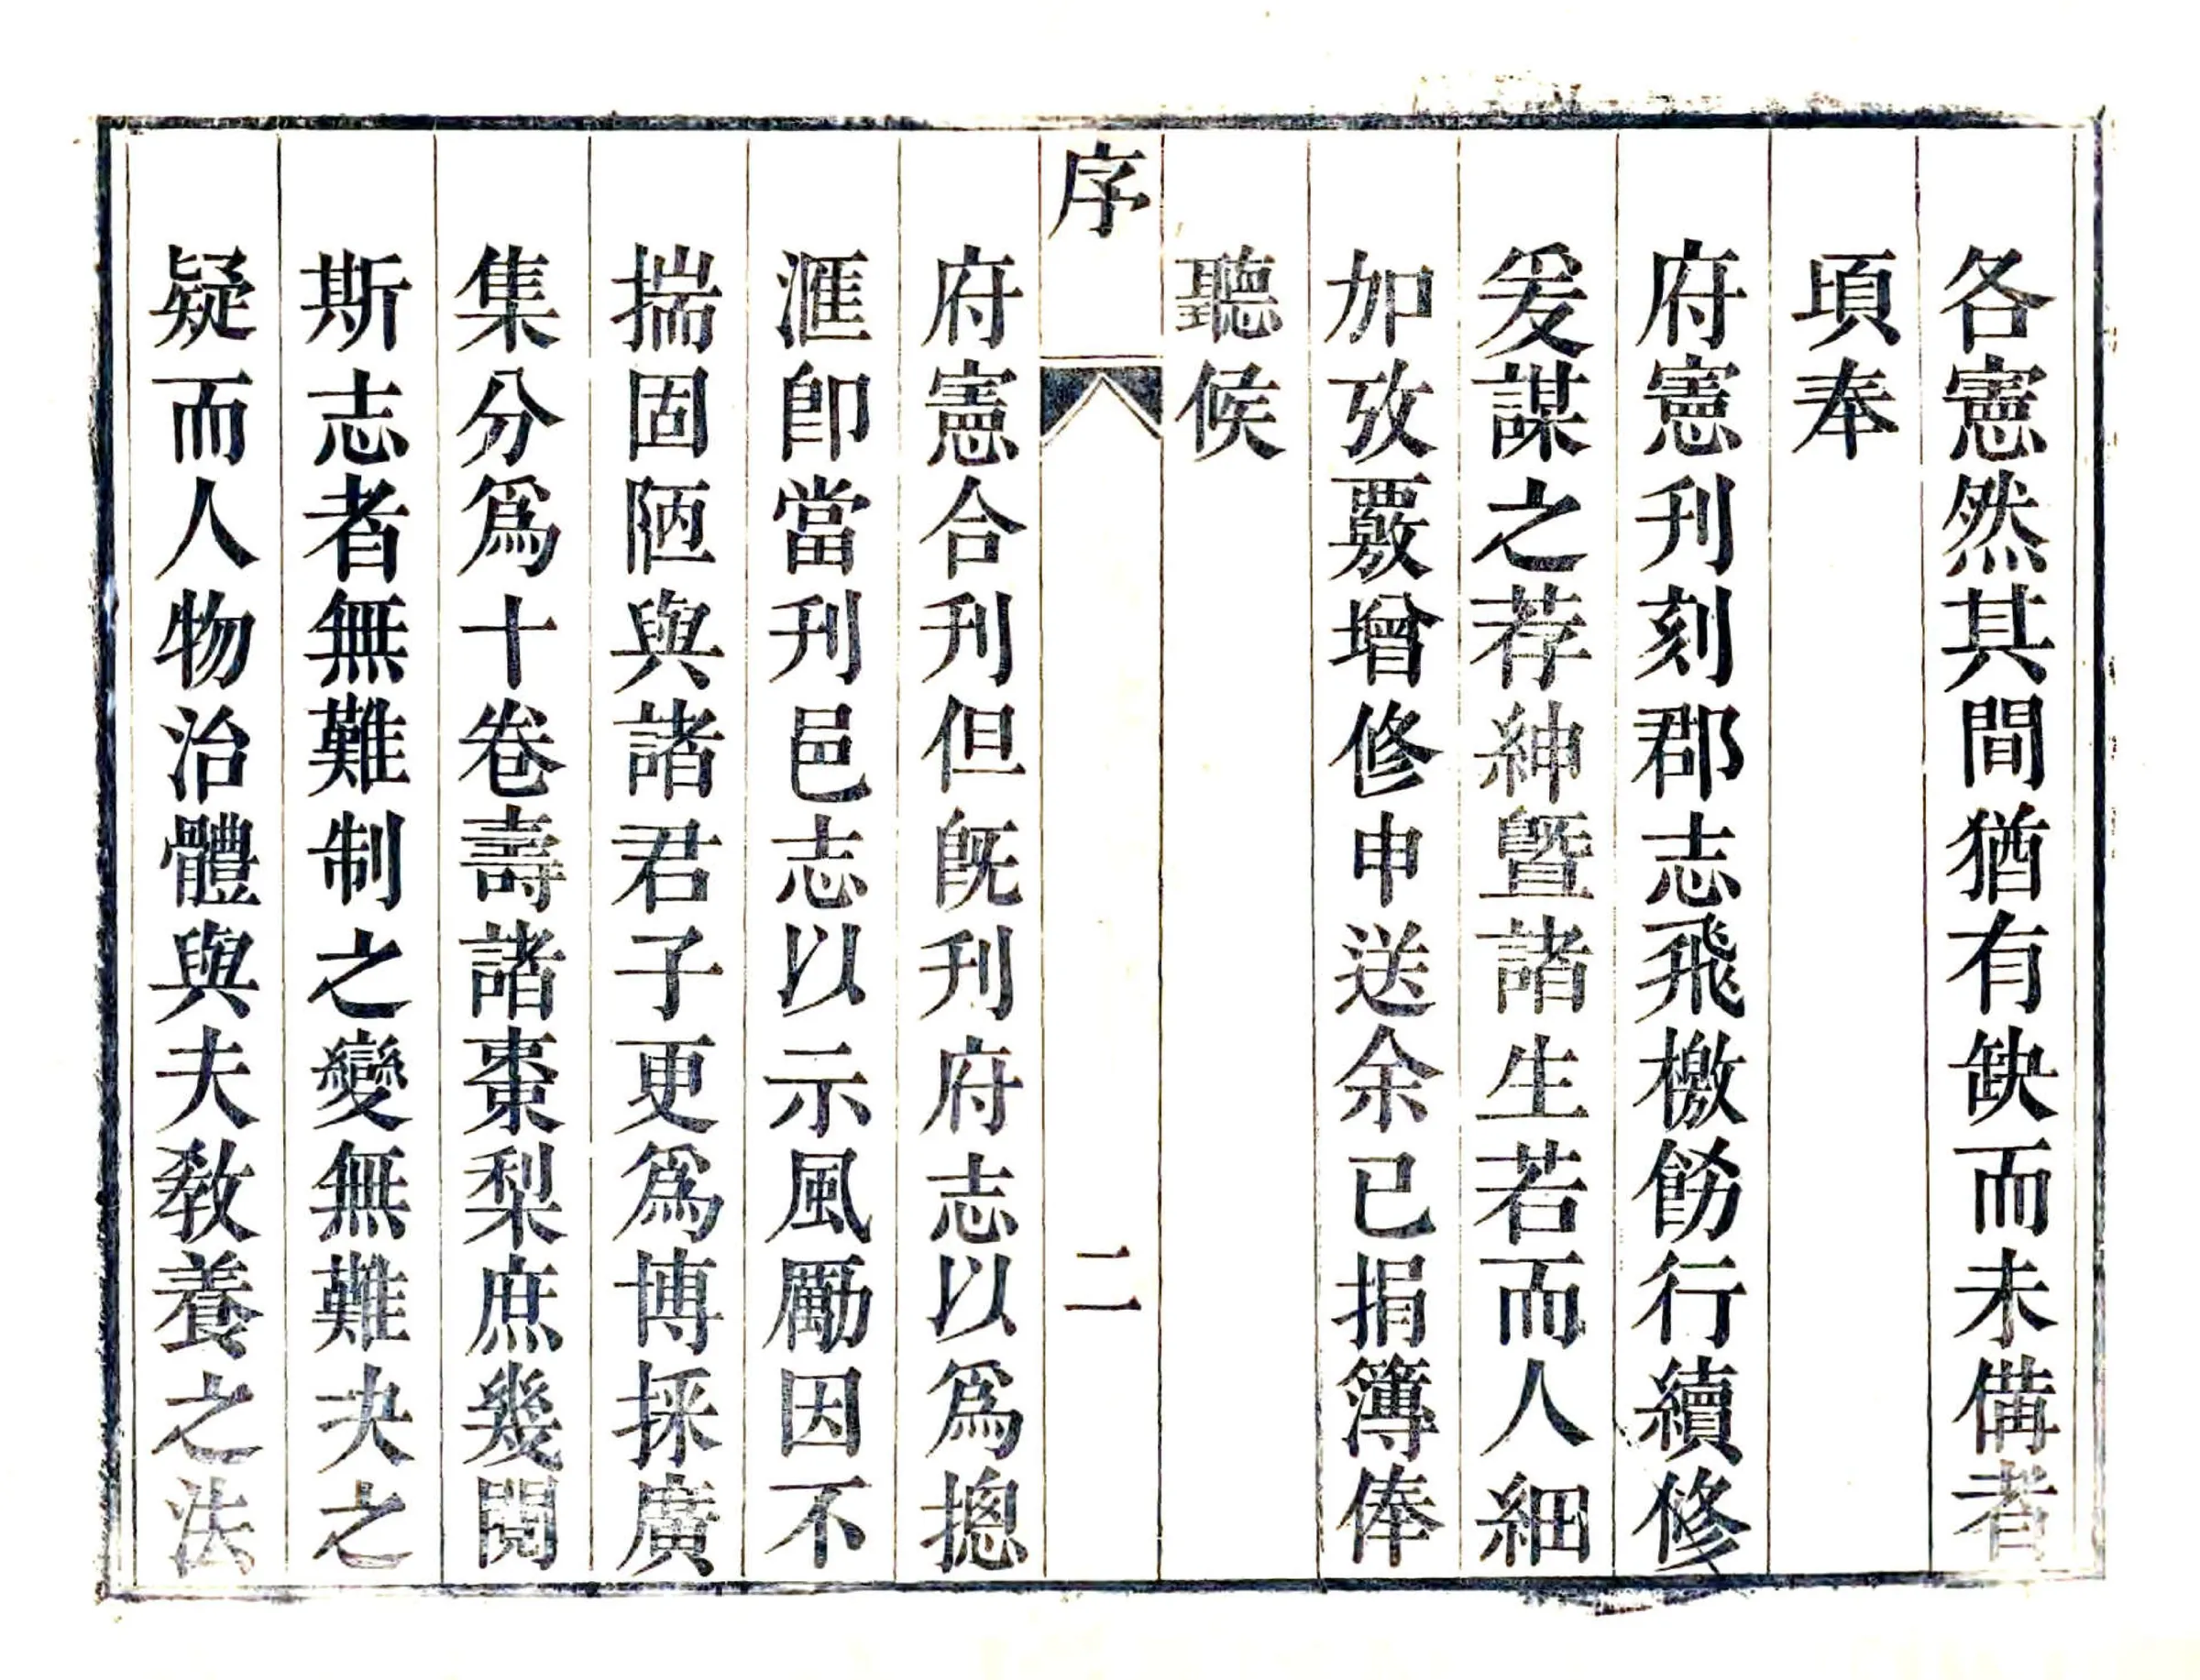 各憲然其間猶有缺而未備者
頃奉
府憲刊刻郡志飛檄飭行續修
爰謀之荐紳暨諸生若而人細
加攷覈增修申送余已捐簿俸
聽候
序
二
府憲合刊但旣刊府志以爲摠
滙卽當刊邑志以示風勵因不
揣固陋與諸君子更爲博採廣
集分爲十卷壽諸棗梨庶幾閱
斯志者無難制之變無難决之
疑而人物治體與夫敎養之法